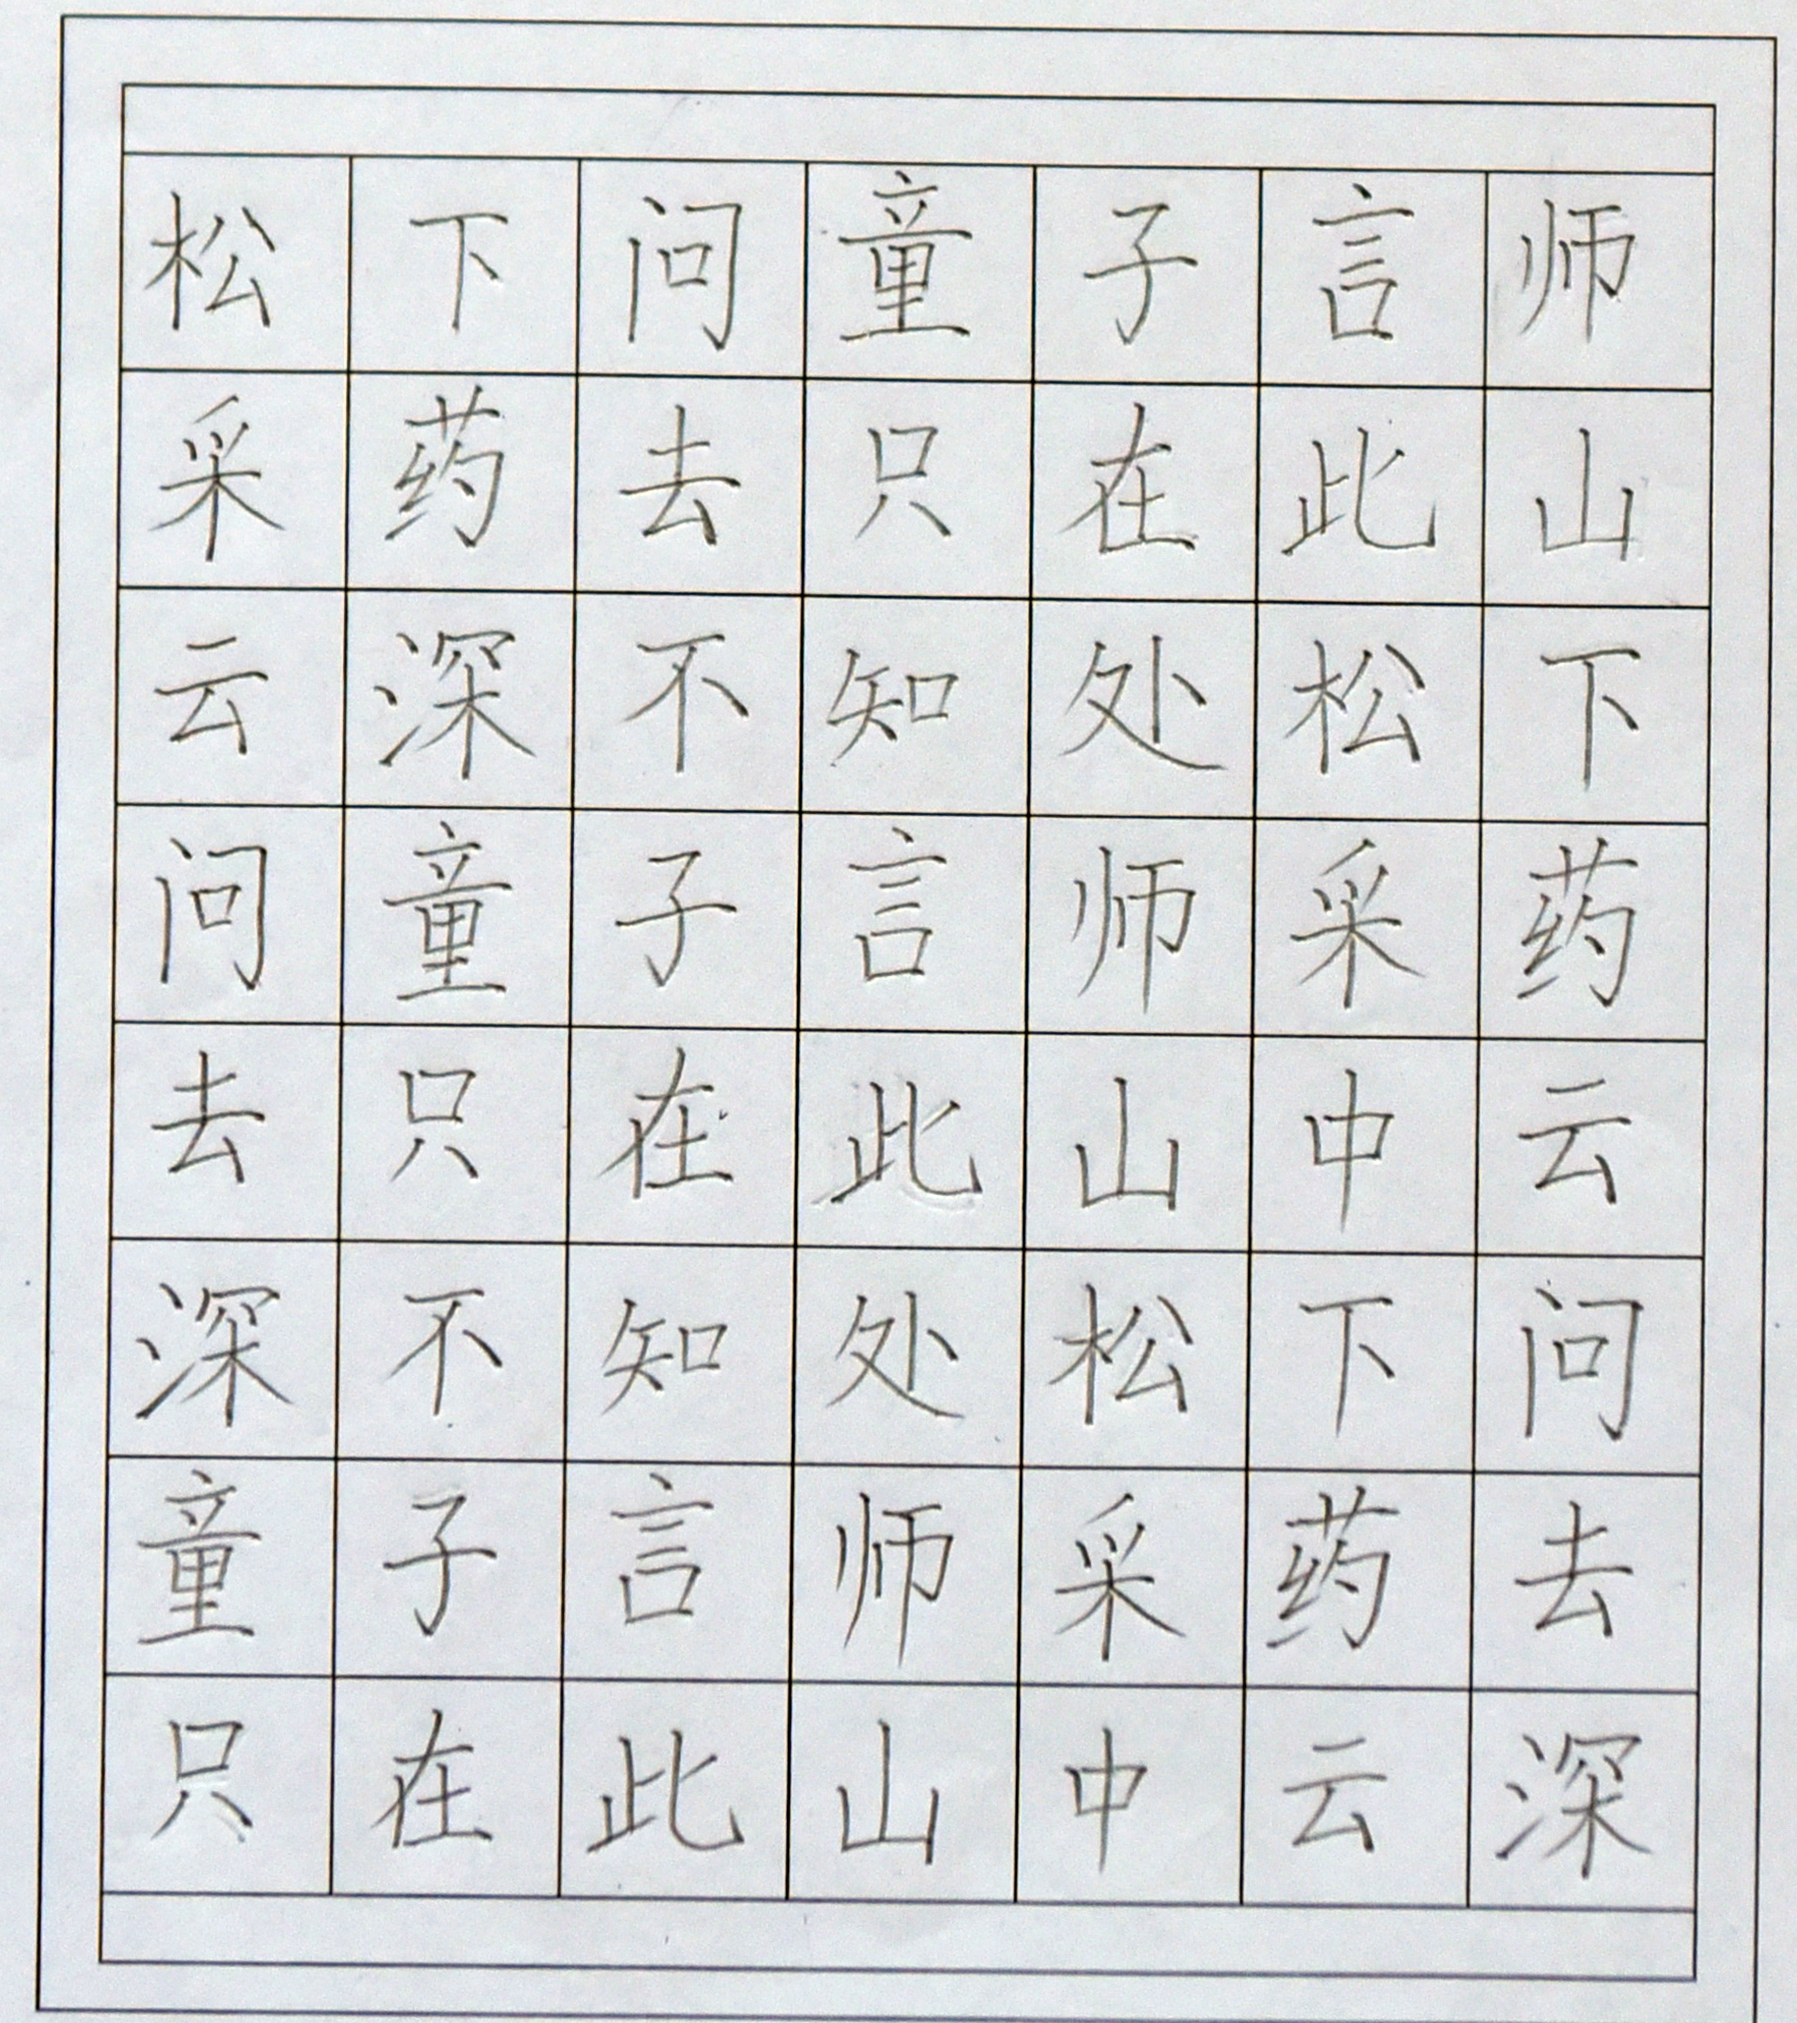 松下问童子言师
采药去只在此山
云深不知处松下
问童子言师采药
去只在此山中云
深不知处松下问
童子言师采药去
只在此山中云深